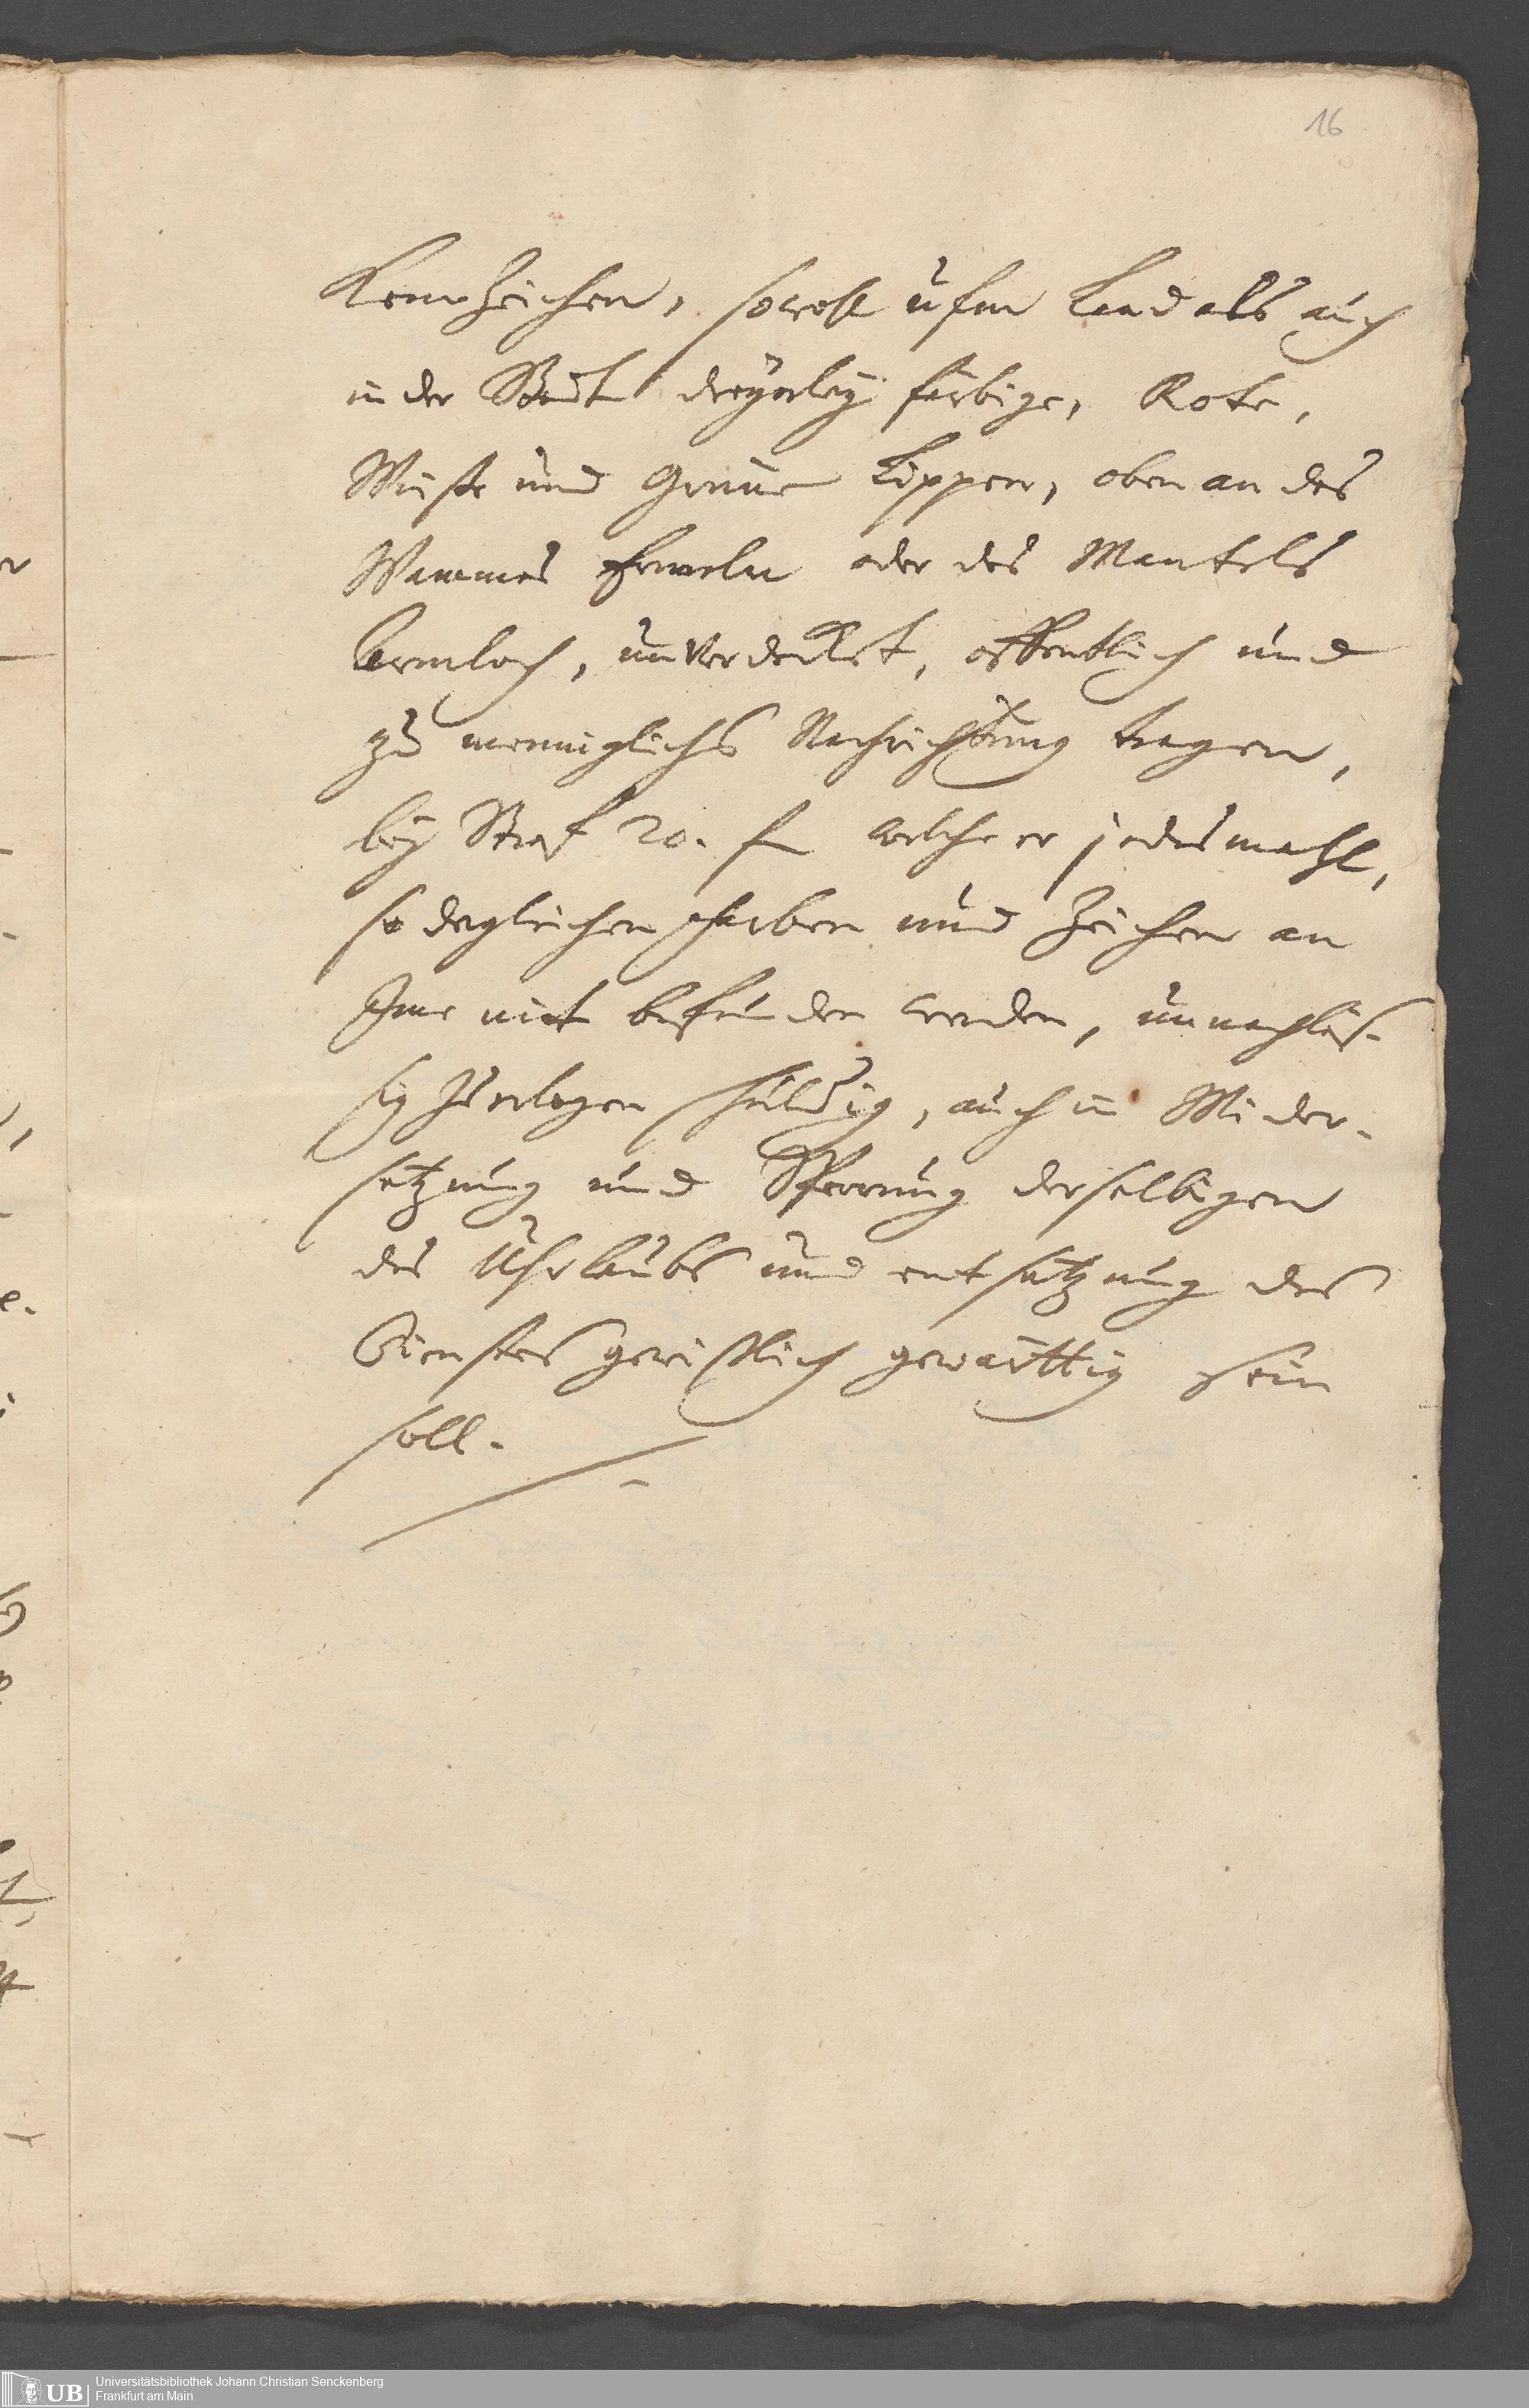 16
Kennzeichen, sowohl ufm Land als auch
in der Stadt dreyerley färbige, Rote,
Weiße und Grüne Lippen, oben an des
Wammes Ermeln oder des Mantels
Armloch, unverdeckt, offentlich und
zu menniglichs Nachrichtung tragen,
bey Straf 20. f welche er jedesmahl,
so dergleichen Farben und Zeichen an
Ihme nit befunden werden, unnachläs-
sig zuerlegen schuldig, auch in Wider-
setzung und Sperrung derselbigen
des Uhrlaubs und entsetzung des
Dienstes gewißlich gewärttig sein
soll.
UB
Universitätsbibliothek Johann Christian Senckenberg
Frankfurt am Main